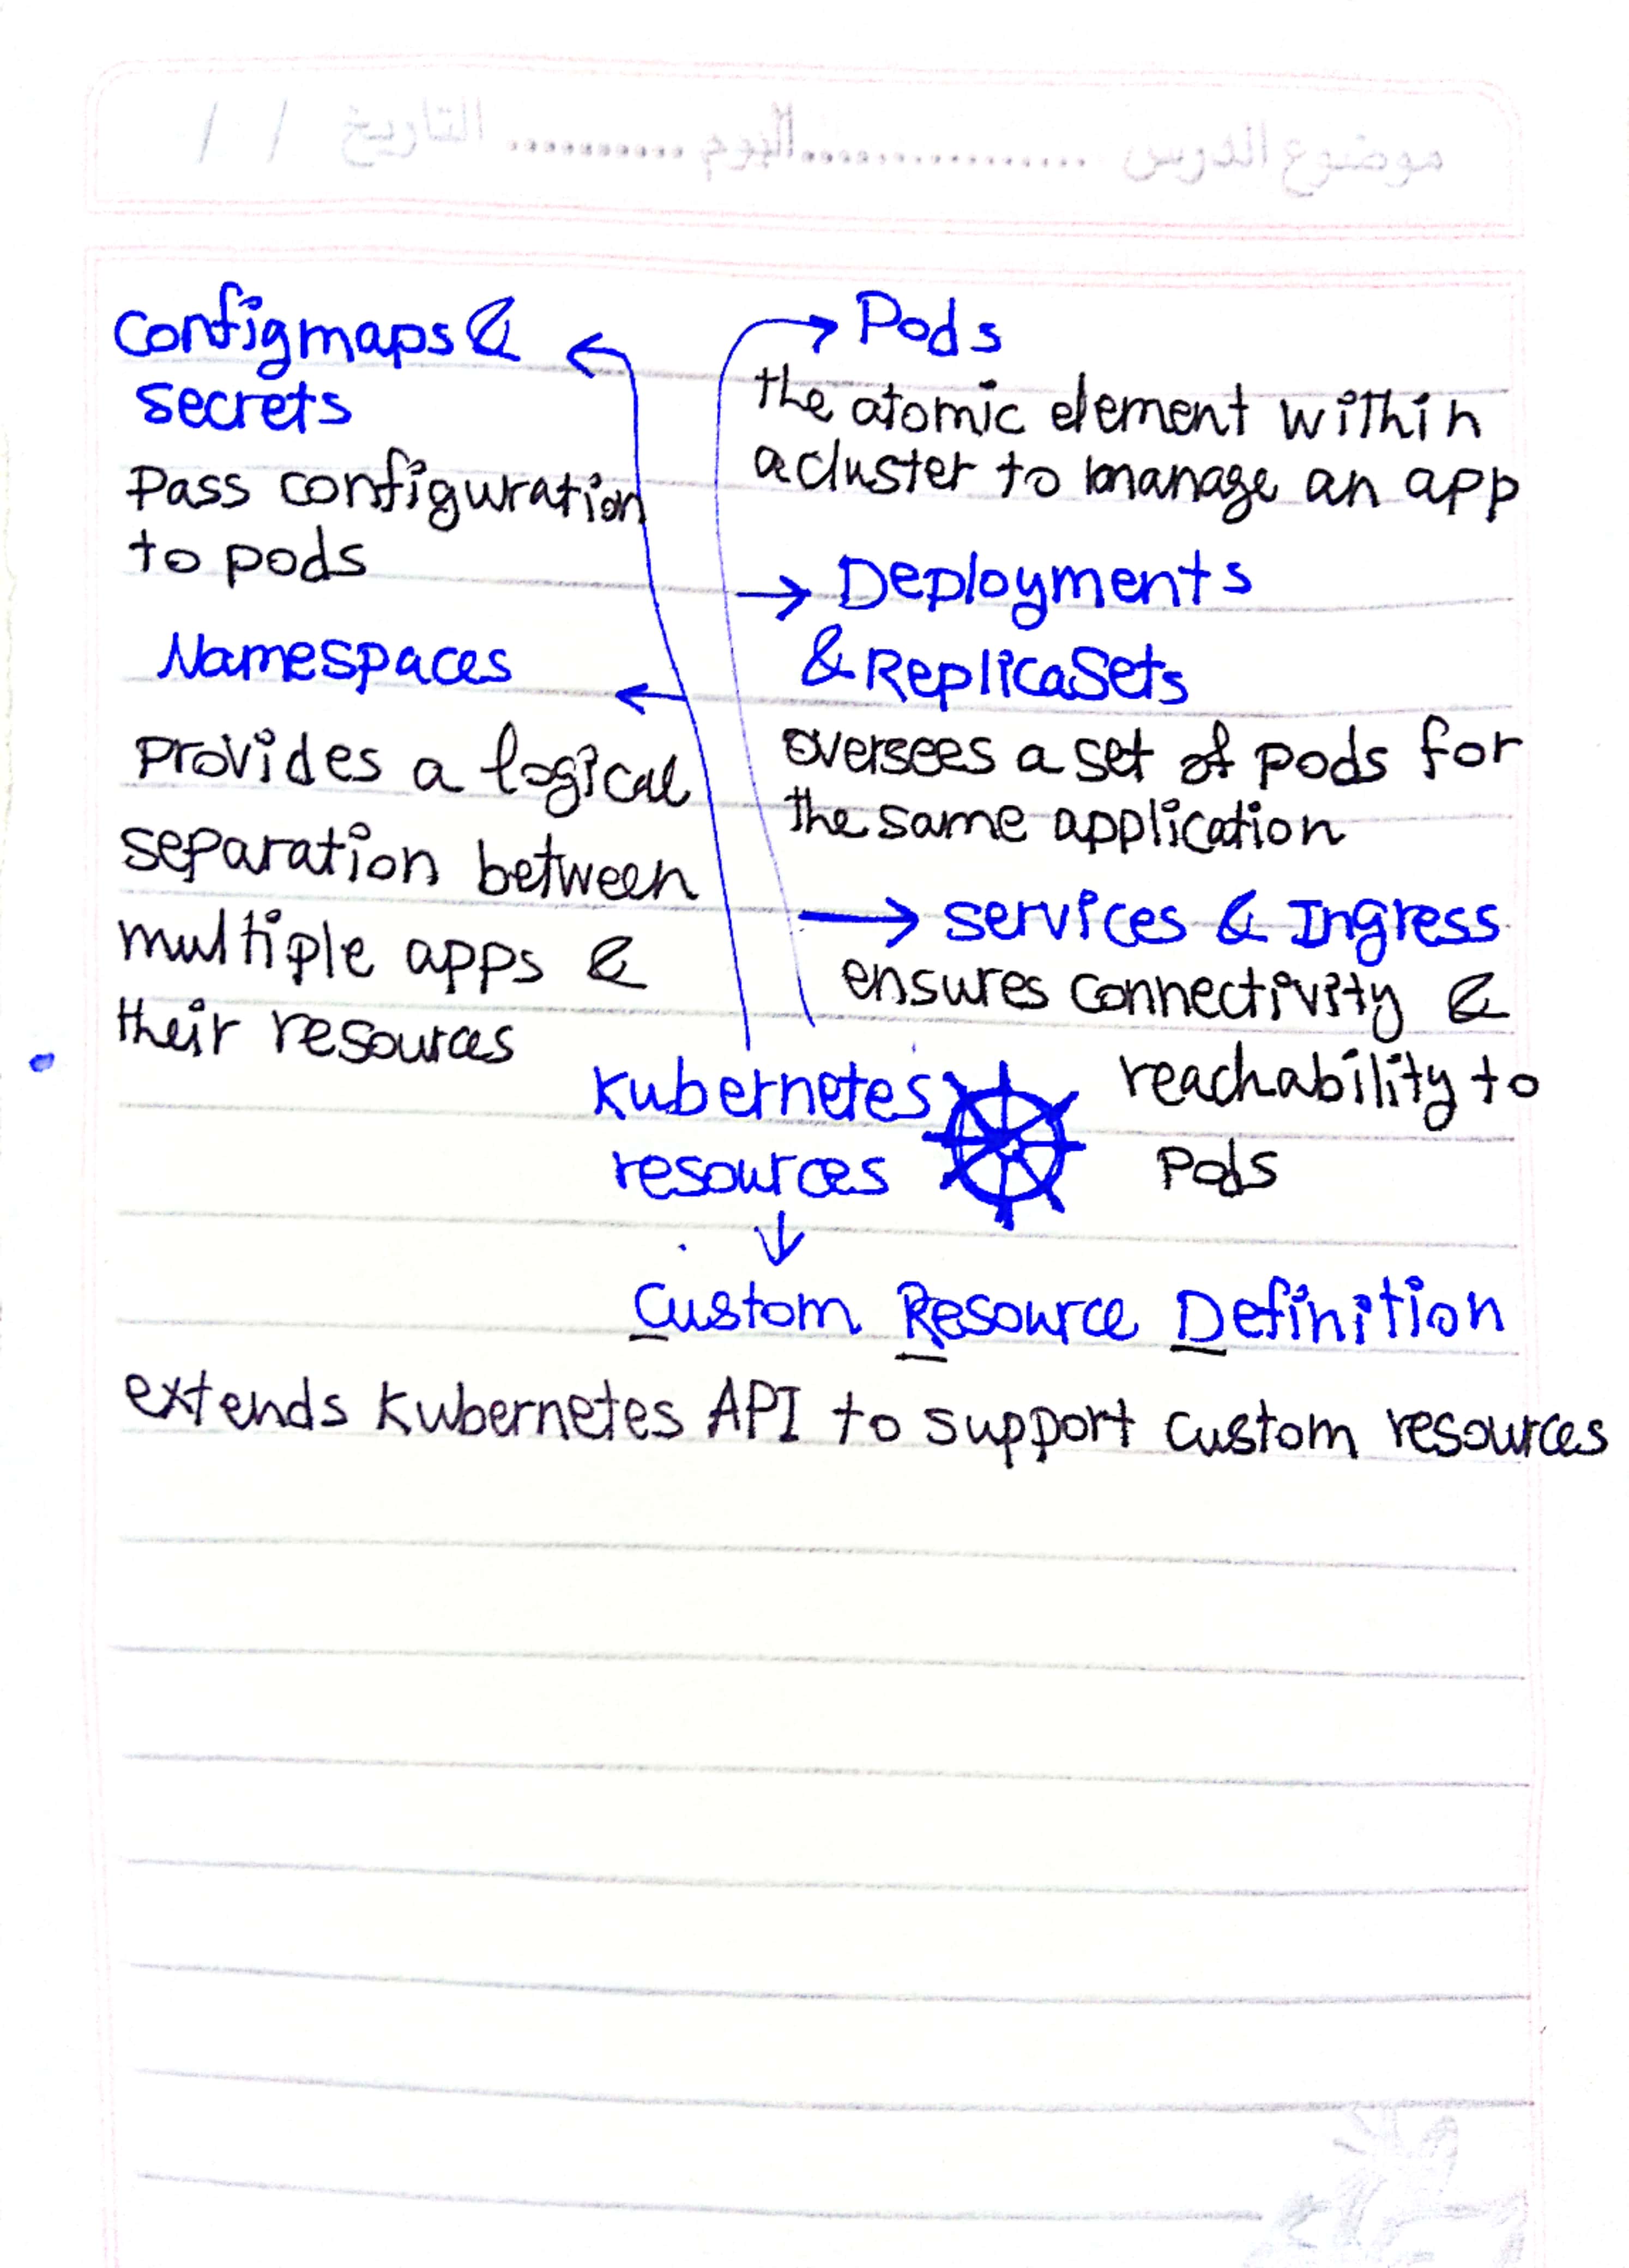 موضوع الدرس .................. اليوم ............ التاريخ / /
Configmaps &
Secrets
Pass configuration
to pods
Namespaces
Provides a logical
separation between
multiple apps &
their resources
Pods
the atomic element within
a cluster to manage an app
Deployments
& ReplicaSets
oversees a set of pods for
the same application
Services & Ingress
ensures connectivity &
reachability to
Pods
Kubernetes
resources
Custom Resource Definition
extends Kubernetes API to support custom resources